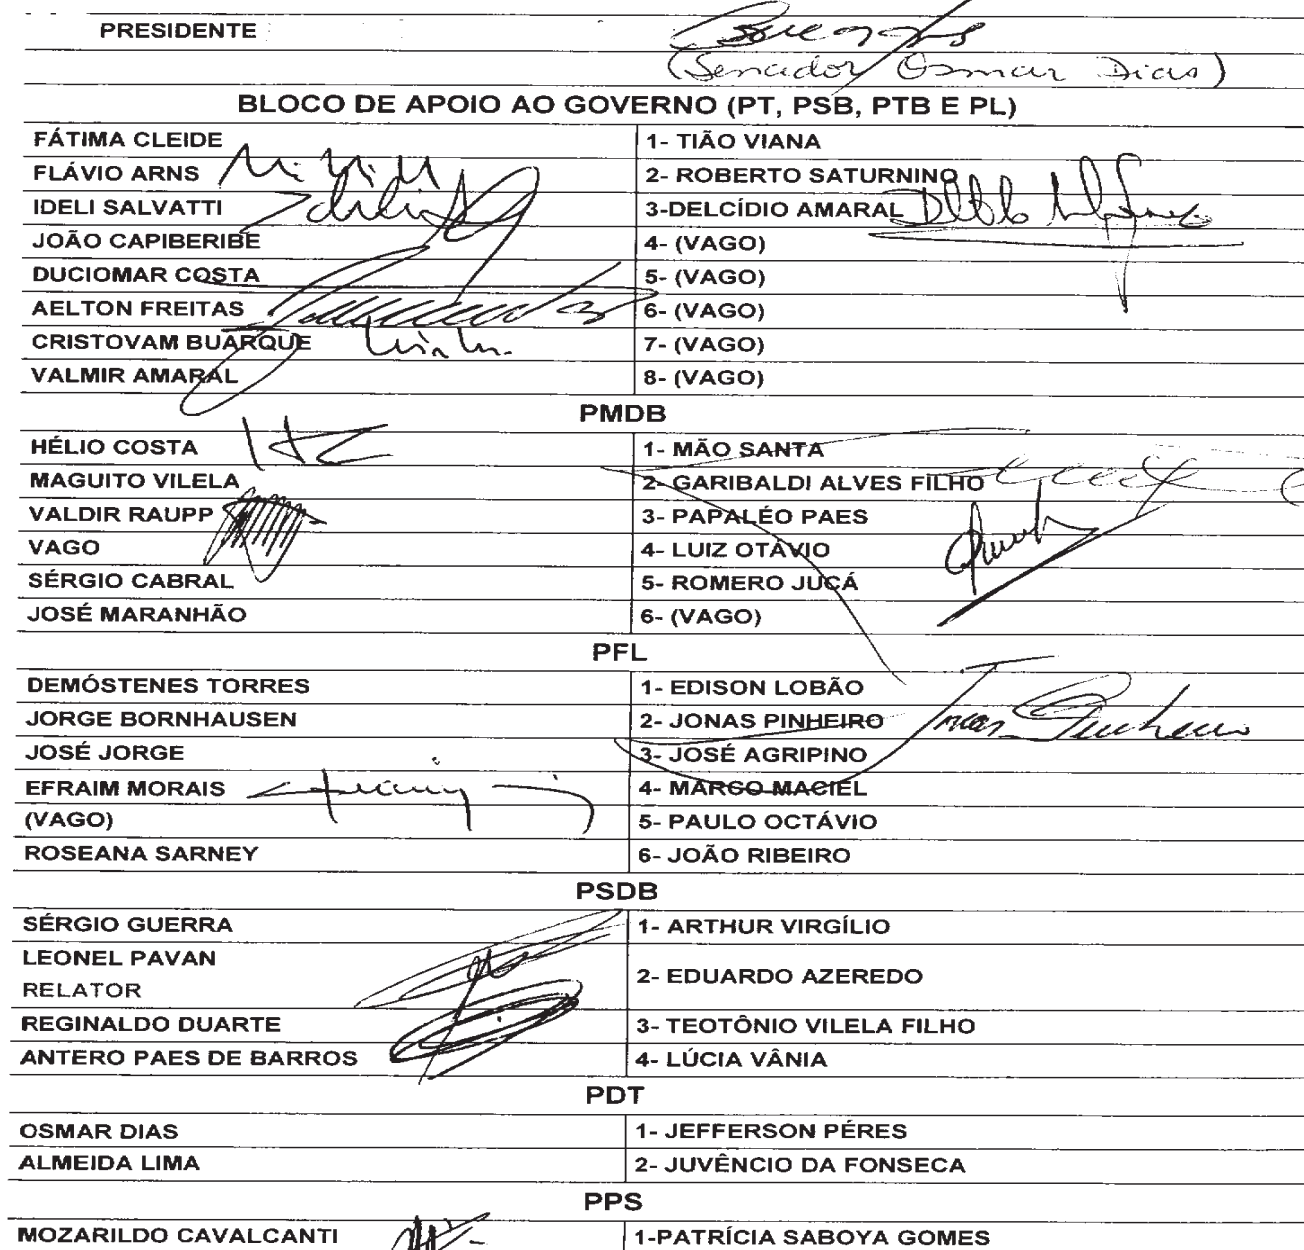 PRESIDENTE
(Senador Osmar Dias)
BLOCO DE APOIO AO GOVERNO (PT, PSB, PTB E PL)
FÁTIMA CLEIDE 1- TIÃO VIANA
FLÁVIO ARNS 2- ROBERTO SATURNINO
IDELI SALVATTI 3-DELCÍDIO AMARAL
JOÃO CAPIBERIBE 4- (VAGO)
DUCIOMAR COSTA 5- (VAGO)
AELTON FREITAS 6- (VAGO)
CRISTOVAM BUARQUE 7- (VAGO)
VALMIR AMARAL 8- (VAGO)
PMDB
HÉLIO COSTA 1- MÃO SANTA
MAGUITO VILELA 2- GARIBALDI ALVES FILHO
VALDIR RAUPP 3- PAPALÉO PAES
VAGO 4- LUIZ OTÁVIO
SÉRGIO CABRAL 5- ROMERO JUCÁ
JOSÉ MARANHÃO 6- (VAGO)
PFL
DEMÓSTENES TORRES 1- EDISON LOBÃO
JORGE BORNHAUSEN 2- JONAS PINHEIRO Jonas Pinheiro
JOSÉ JORGE 3- JOSÉ AGRIPINO
EFRAIM MORAIS 4- MARCO MACIEL
(VAGO) 5- PAULO OCTÁVIO
ROSEANA SARNEY 6- JOÃO RIBEIRO
PSDB
SÉRGIO GUERRA 1- ARTHUR VIRGÍLIO
LEONEL PAVAN
RELATOR 2- EDUARDO AZEREDO
REGINALDO DUARTE 3- TEOTÔNIO VILELA FILHO
ANTERO PAES DE BARROS 4- LÚCIA VÂNIA
PDT
OSMAR DIAS 1- JEFFERSON PÉRES
ALMEIDA LIMA 2- JUVÊNCIO DA FONSECA
PPS
MOZARILDO CAVALCANTI 1-PATRÍCIA SABOYA GOMES